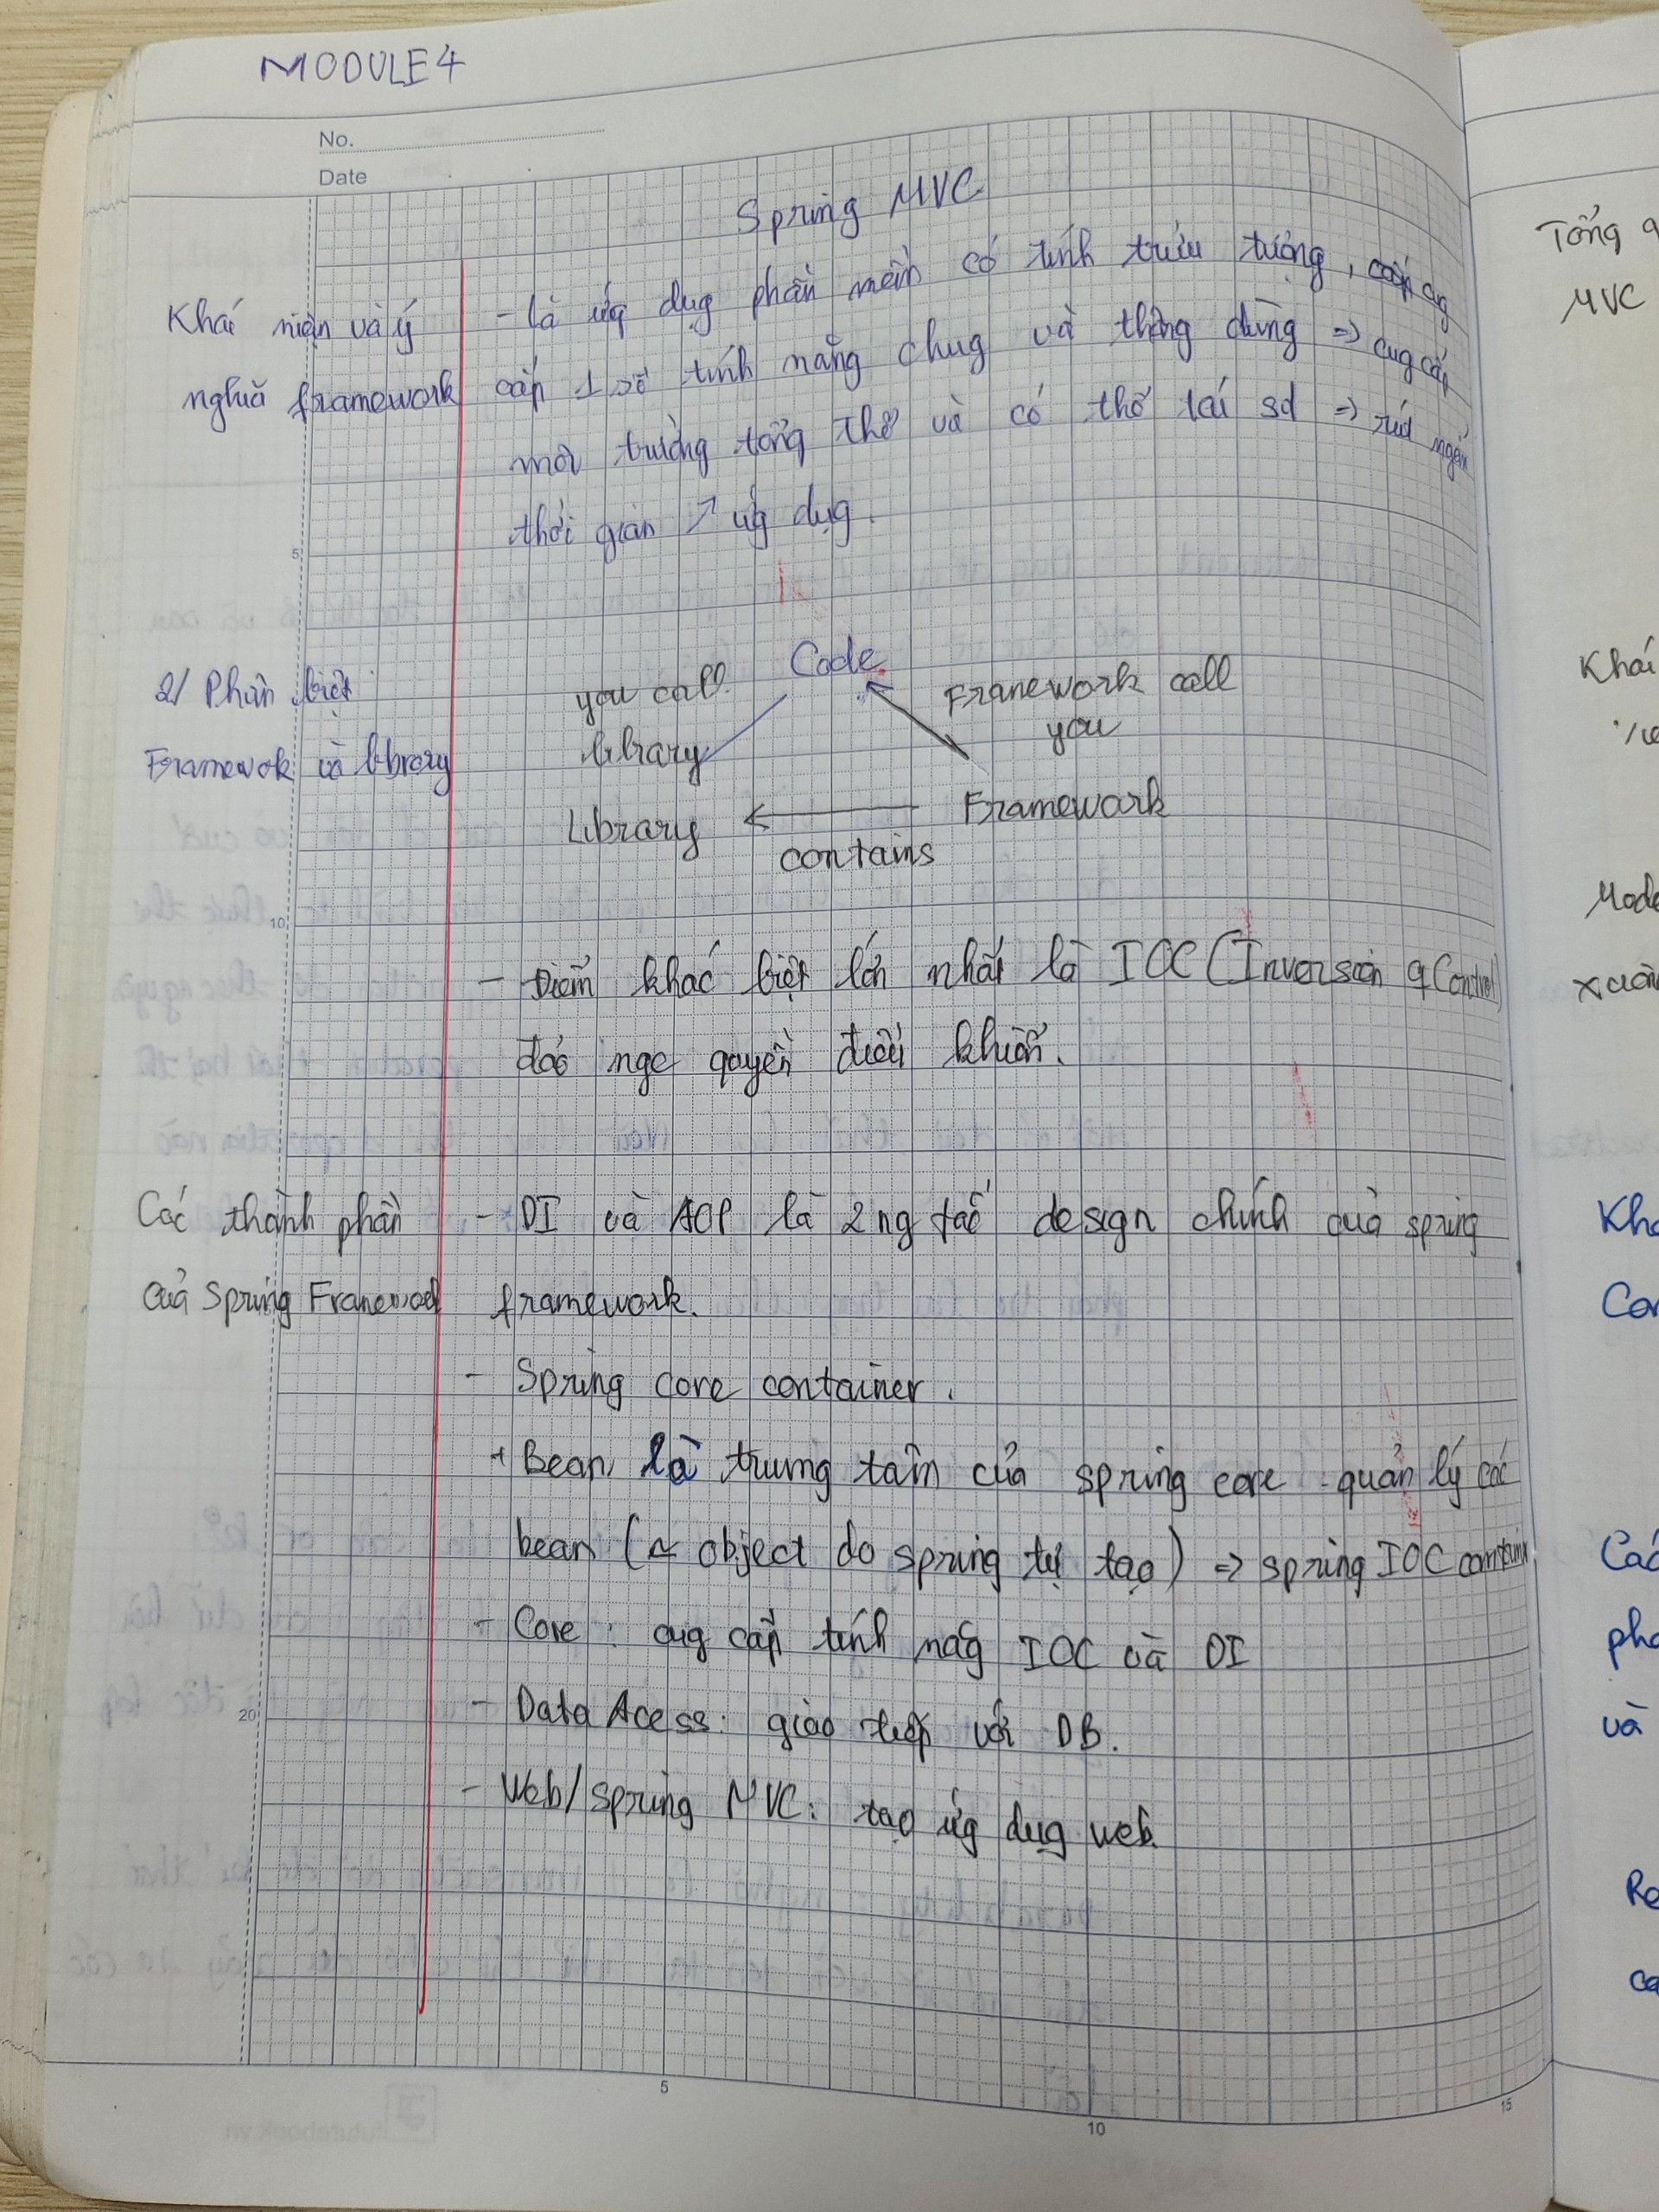 MODULE 4
No.
Date
Spring MVC
Khái niện và ý
nghuã framework
- là ứg dụg phần mềm có tính trừu tượng, cug
cấp 1 số tính năng chug và thông dùng => cug cấp
môi trường tổng thể và có thể tái sd => rút ngắn
thời gian ↗ ứg dụg.
5
2/ Phân biệt
Framewok và library
Code
you call
library
Framework call
you
Library ← Framework
contains
10
- Điểm khác biệt lớn nhất là IOC (Inversion of Control)
đảo ngc quyền điều khiển.
Các thành phần
của Spring Framewod
- DI và AOP là 2 ng tắc design chính của spring
framework.
- Spring core container.
+ Bean là trung tâm của spring core quản lý các
bean (~ object do spring tự tạo) => spring IOC container
- Core: cug cấp tính năg IOC và DI
20
- Data Acess: giao tiếp với DB.
- Web/spring MVC: tạo ứg dụg web.
5
10
15
Tổng q
MVC
Khái
Mode
xuôn
Kha
Con
Các
pho
và
Re
ca